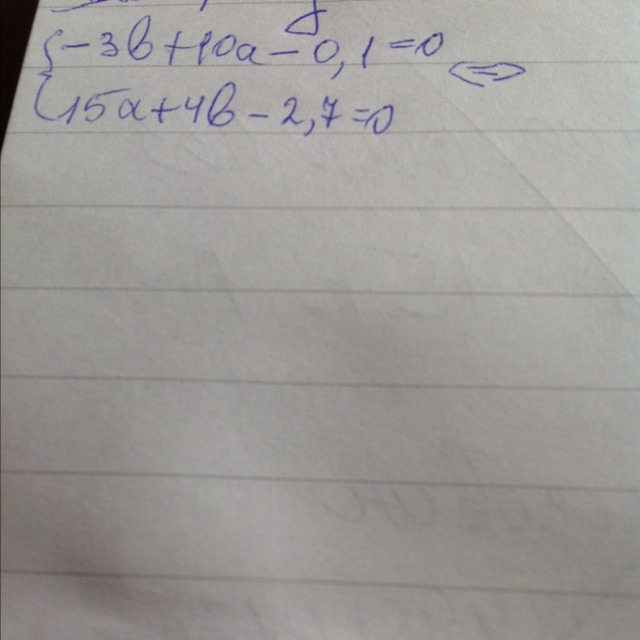 {-3b+10a-0,1=0 <=>
{15a+4b-2,7=0